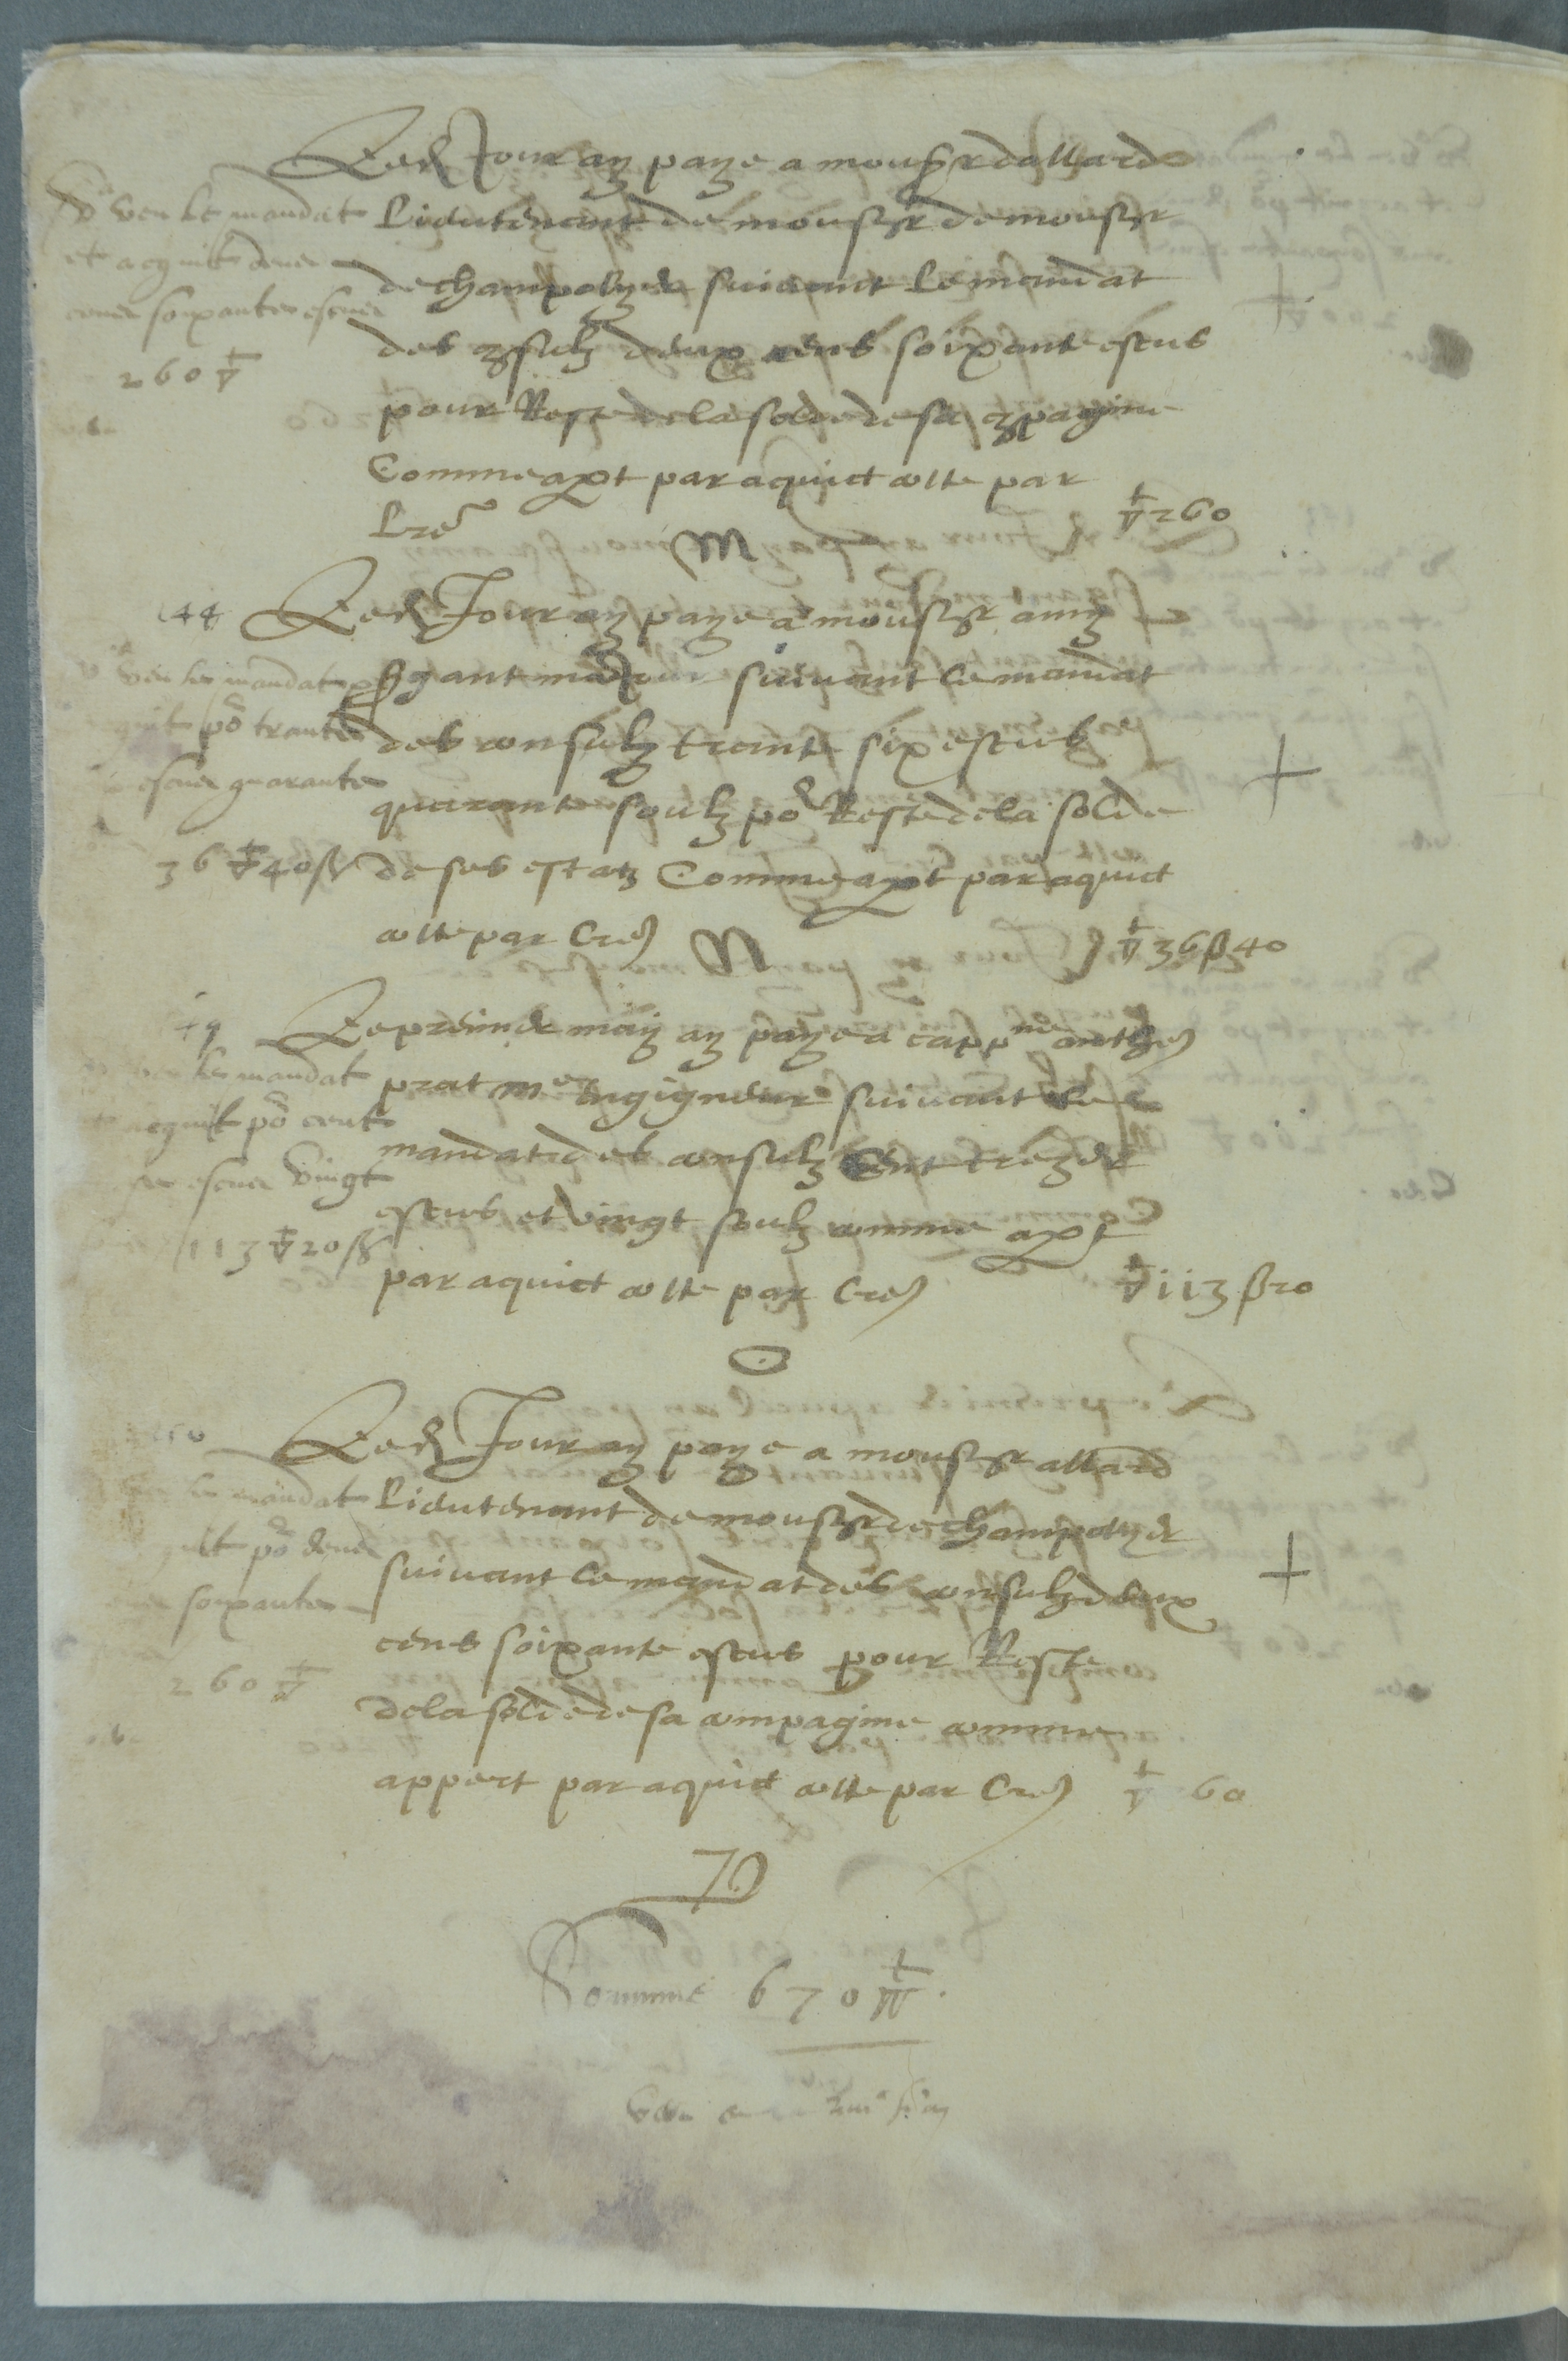 Led Jour ay paye a monsr dallard
Lieutenant de monsr de monsr
de champolyer suivant le mandat
des 9sulz deux cens soixante escus
pour Reste de la solde de sa 9pagnie
Comme apt par aquict cotte par
Lre
▽ 260
veu le mandat
et acquit deux
cens soixante escus
260 ▽
M
44
Led Jour ay paye a monsr amy
sgant maiour suivant le mandat
des consulz trante six escus
quarante soulz po Reste de la solde
de ses estatz Comme apt par aquict
cotte par Lre
▽ 36 ß 40
veu le mandat
quit po trante
escus quarante
36 ▽ 40 ß
N
Le premier may ay paye a cappne anthe
prat me Ingigneur suivant le
mandat des consulz Cent treze
escus et vingt soulz comme apt
par aquict cotte par Lre
▽ 113 ß 20
veu le mandat
acquit po cent
escus vingt
113 ▽ 20 ß
O
Led Jour ay paye a monsr allard
Lieutenant de monsr de champolyer
suivant le mandat des consulz deux
cens soixante escus pour Reste
de la solde de sa compagnie comme
appert par aquict cotte par Lre
▽ 60
le mandat
quit po deux
soixante
260 ▽
P
Somme 670 ▽
veu